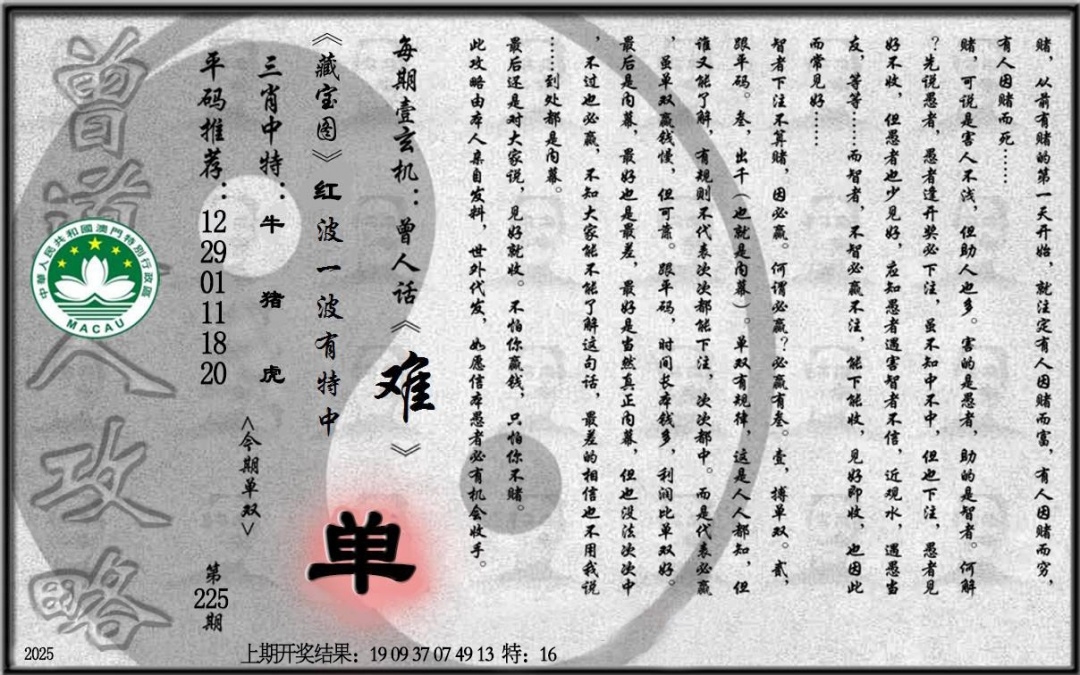 赌，从前有赌的第一天开始，就注定有人因赌而富，有人因赌而穷，
有人因赌而死……
赌，可说是害人不浅，但助人也多。害的是愚者，助的是智者。何解
？先说愚者，愚者逢开奖必下注，虽不知中不中，但也下注，愚者见
好不收，但愚者也少见好，应知愚者遇害智者不信，近观水，遇愚当
友，等等……而智者，不智必赢不注，能下能收，见好即收，也因此
而常见好……
智者下注不算赌，因必赢。何谓必赢？必赢有叁。壹，搏单双。贰，
跟平码。叁，出千（也就是内幕）。单双有规律，这是人人都知，但
谁又能了解，有规则不代表次次都能下注，次次都中。而是代表必赢
，虽单双赢钱慢，但可靠。跟平码，时间长本钱多，利润比单双好。
最后是内幕，最好也是最差，最好是当然真正内幕，但也没法次次中
，不过也必赢，不知大家能不能了解这句话，最差的相信也不用我说
……到处都是内幕。
最后还是对大家说，见好就收。不怕你赢钱，只怕你不赌。
此攻略由本人亲自发料，世外代发，如愿信本愚者必有机会收手。
每期壹玄机：曾人话《难》
《藏宝图》红波一波有特中
三肖中特：牛 猪 虎
平码推荐：12 29 01 11 18 20
<今期单双>
单
第225期
曾道人攻略
中華人民共和國澳門特別行政區
MACAU
2025
上期开奖结果：19 09 37 07 49 13 特：16